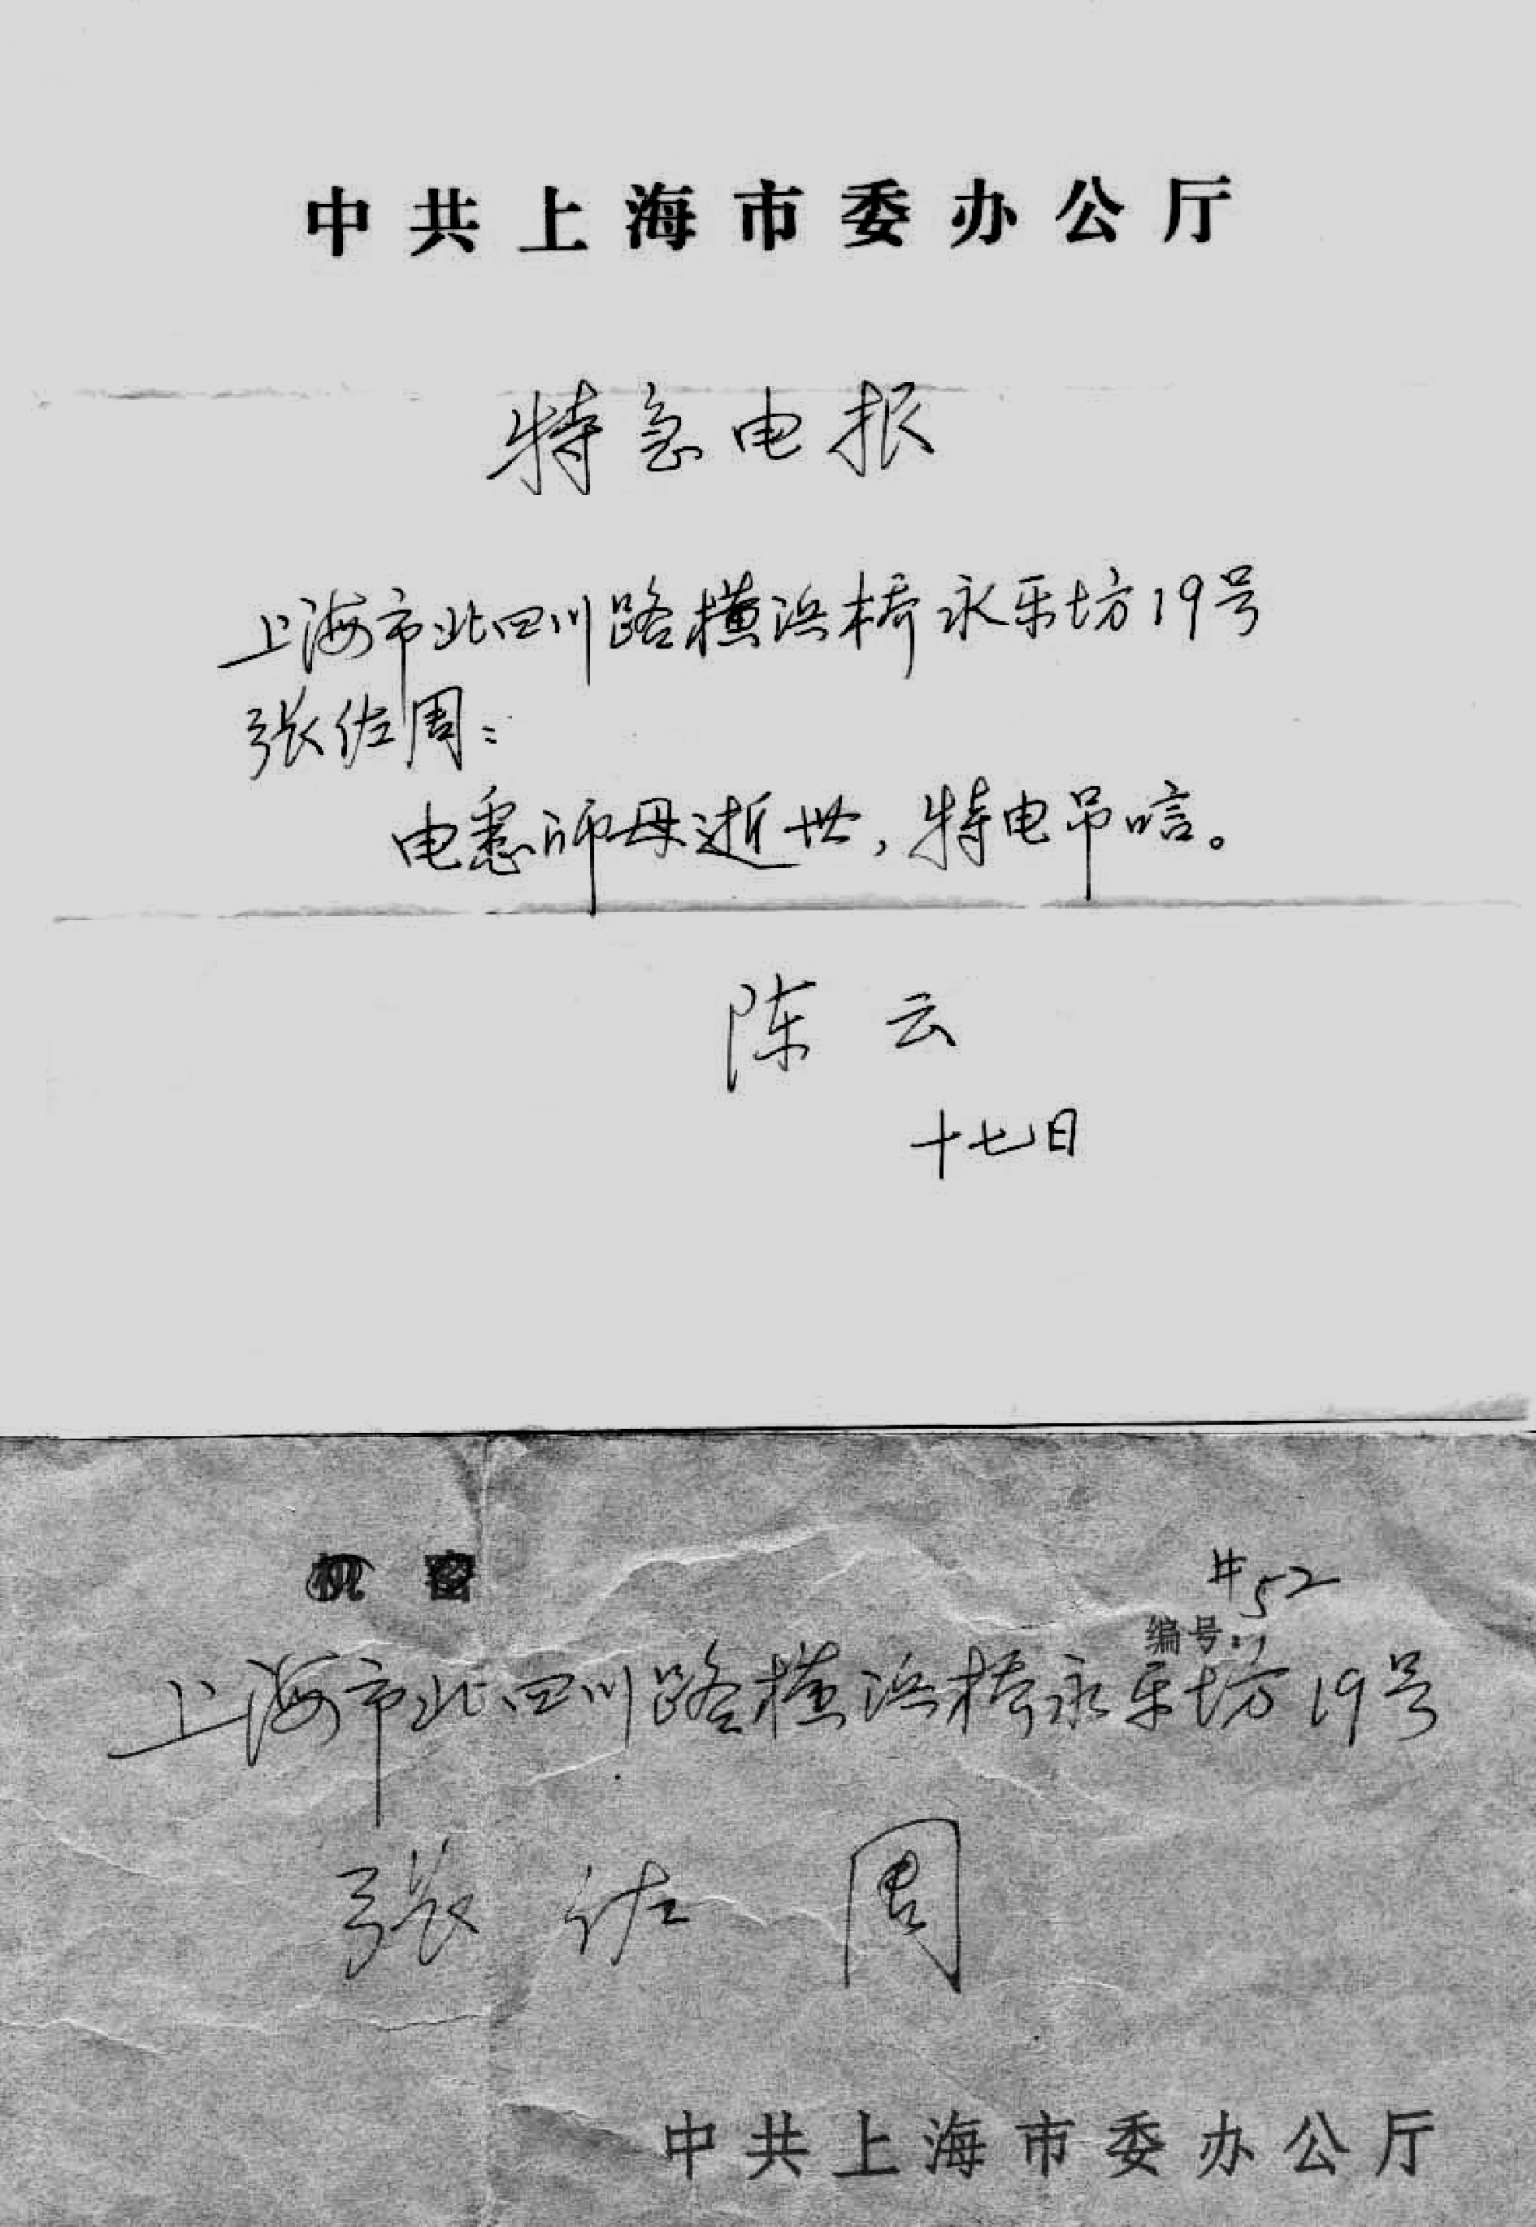 中共上海市委办公厅
特急电报
上海市北四川路横浜桥永乐坊19号
张佐周：
电悉师母逝世，特电吊唁。
陈云
十七日
机密
#52
编号：
上海市北四川路横浜桥永乐坊19号
张佐周
中共上海市委办公厅